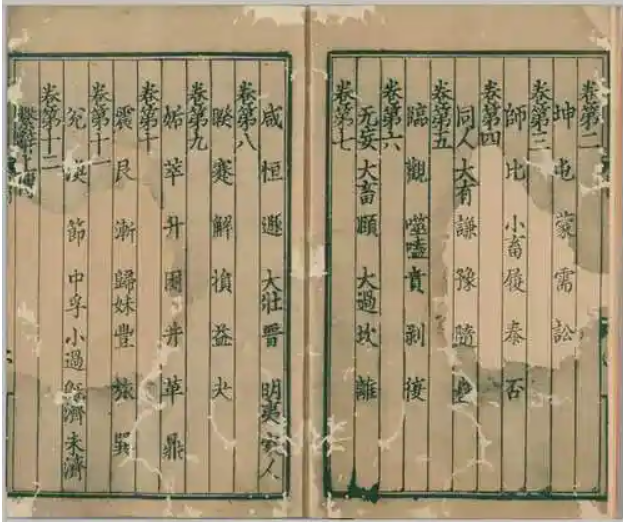 卷第二
坤 屯 蒙 需 訟
卷第三
師 比 小畜 履 泰 否
卷第四
同人 大有 謙 豫 隨 蠱
卷第五
臨 觀 噬嗑 賁 剥 復
卷第六
无妄 大畜 頤 大過 坎 離
卷第七
咸 恒 遯 大壯 晉 明夷 家人
卷第八
睽 蹇 解 損 益 夬
卷第九
姤 萃 升 困 井 革 鼎
卷第十
震 艮 漸 歸妹 豐 旅 巽
卷第十一
兌 渙 節 中孚 小過 既濟 未濟
卷第十二